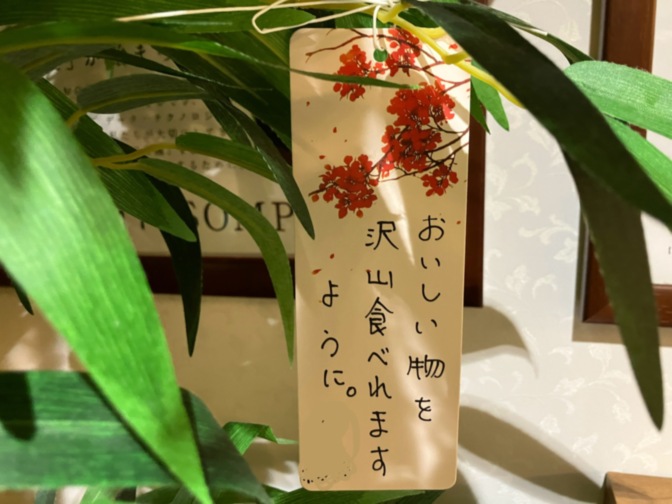 おいしい物を
沢山食べれます
ように。
COMP